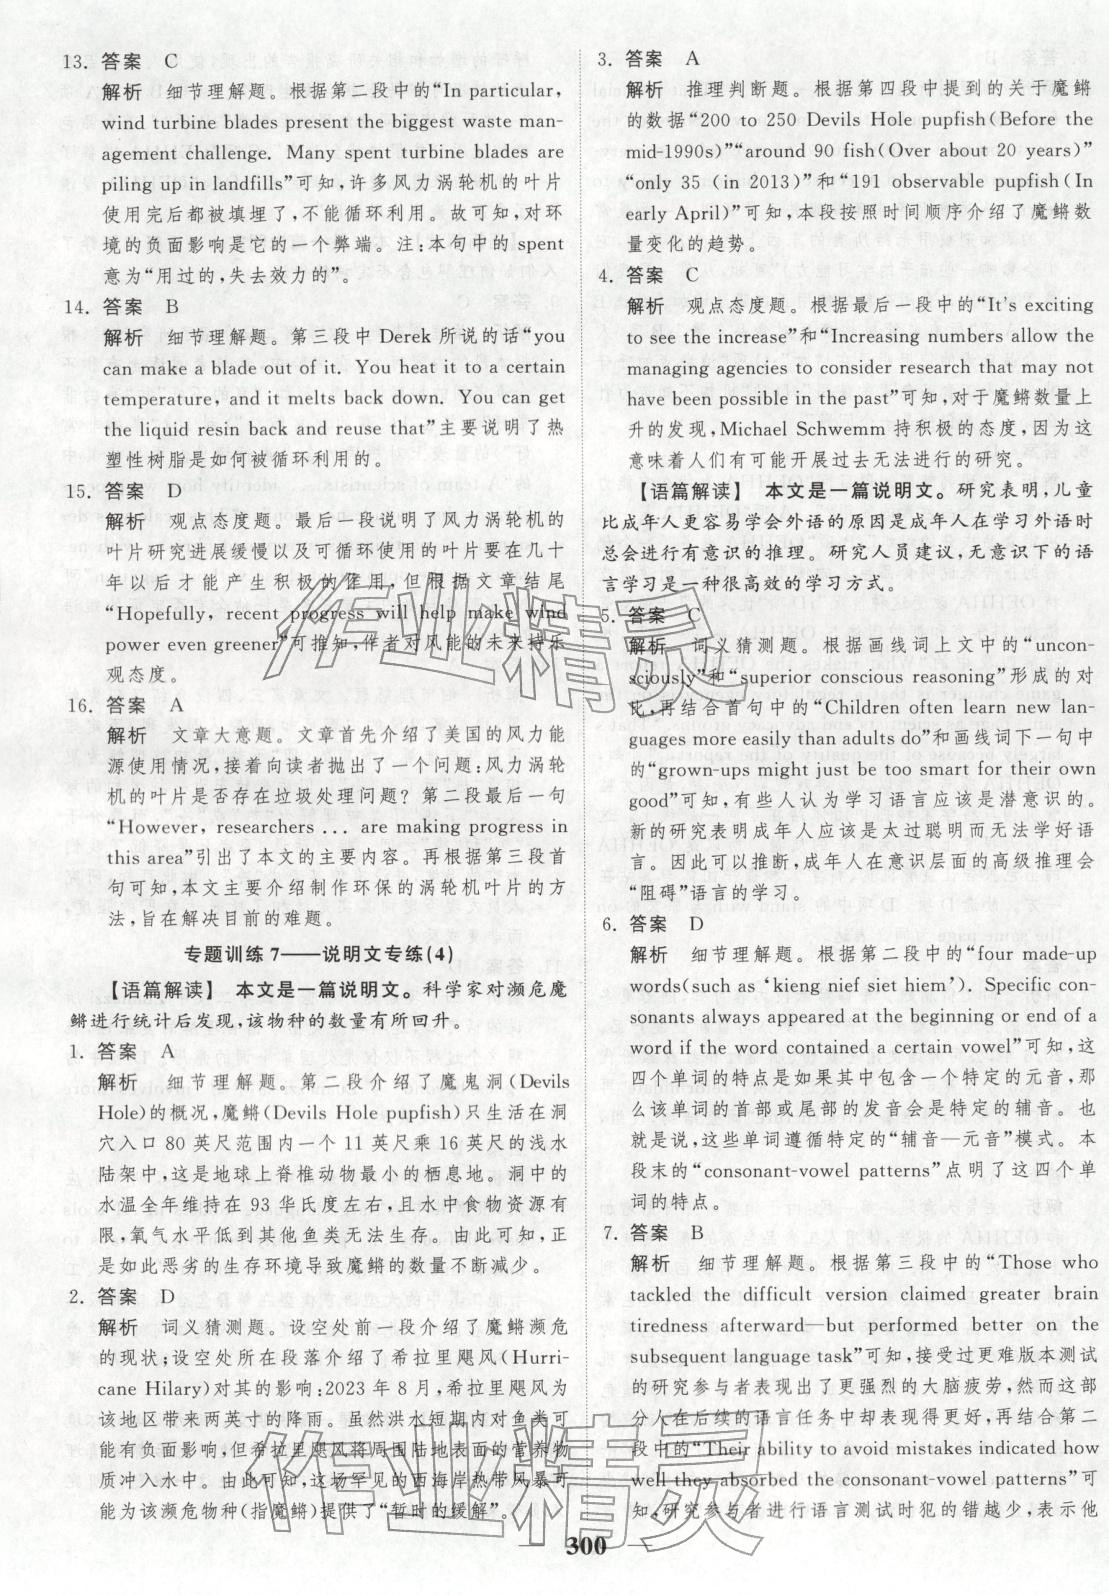 13. 答案　C
解析　细节理解题。根据第二段中的“In particular,
wind turbine blades present the biggest waste man-
agement challenge. Many spent turbine blades are
piling up in landfills”可知，许多风力涡轮机的叶片
使用完后都被填埋了，不能循环利用。故可知，对环
境的负面影响是它的一个弊端。注：本句中的 spent
意为“用过的，失去效力的”。
14. 答案　B
解析　细节理解题。第三段中 Derek 所说的话“you
can make a blade out of it. You heat it to a certain
temperature, and it melts back down. You can get
the liquid resin back and reuse that”主要说明了热
塑性树脂是如何被循环利用的。
15. 答案　D
解析　观点态度题。最后一段说明了风力涡轮机的
叶片研究进展缓慢以及可循环使用的叶片要在几十
年以后才能产生积极的作用，但根据文章结尾
“Hopefully, recent progress will help make wind
power even greener”可推知，作者对风能的未来持乐
观态度。
16. 答案　A
解析　文章大意题。文章首先介绍了美国的风力能
源使用情况，接着向读者抛出了一个问题：风力涡轮
机的叶片是否存在垃圾处理问题？第二段最后一句
“However, researchers ... are making progress in
this area”引出了本文的主要内容。再根据第三段首
句可知，本文主要介绍制作环保的涡轮机叶片的方
法，旨在解决目前的难题。
专题训练 7——说明文专练(4)
【语篇解读】　本文是一篇说明文。科学家对濒危魔
鳉进行统计后发现，该物种的数量有所回升。
1. 答案　A
解析　细节理解题。第二段介绍了魔鬼洞(Devils
Hole)的概况，魔鳉(Devils Hole pupfish)只生活在洞
穴入口 80 英尺范围内一个 11 英尺乘 16 英尺的浅水
陆架中，这是地球上脊椎动物最小的栖息地。洞中的
水温全年维持在 93 华氏度左右，且水中食物资源有
限，氧气水平低到其他鱼类无法生存。由此可知，正
是如此恶劣的生存环境导致魔鳉的数量不断减少。
2. 答案　D
解析　词义猜测题。设空处前一段介绍了魔鳉濒危
的现状；设空处所在段落介绍了希拉里飓风(Hurri-
cane Hilary)对其的影响：2023 年 8 月，希拉里飓风为
该地区带来两英寸的降雨。虽然洪水短期内对鱼类可
能有负面影响，但希拉里飓风将周围陆地表面的营养物
质冲入水中。由此可知，这场罕见的西海岸热带风暴可
能为该濒危物种(指魔鳉)提供了“暂时的缓解”。
3. 答案　A
解析　推理判断题。根据第四段中提到的关于魔鳉
的数据“200 to 250 Devils Hole pupfish(Before the
mid-1990s)”“around 90 fish(Over about 20 years)”
“only 35 (in 2013)”和“191 observable pupfish(In
early April)”可知，本段按照时间顺序介绍了魔鳉数
量变化的趋势。
4. 答案　C
解析　观点态度题。根据最后一段中的“It's exciting
to see the increase”和“Increasing numbers allow the
managing agencies to consider research that may not
have been possible in the past”可知，对于魔鳉数量上
升的发现，Michael Schwemm 持积极的态度，因为这
意味着人们有可能开展过去无法进行的研究。
【语篇解读】　本文是一篇说明文。研究表明，儿童
比成年人更容易学会外语的原因是成年人在学习外语时
总会进行有意识的推理。研究人员建议，无意识下的语
言学习是一种很高效的学习方式。
5. 答案　C
解析　词义猜测题。根据画线词上文中的“uncon-
sciously”和“superior conscious reasoning”形成的对
比，再结合首句中的“Children often learn new lan-
guages more easily than adults do”和画线词下一句中
的“grown-ups might just be too smart for their own
good”可知，有些人认为学习语言应该是潜意识的。
新的研究表明成年人应该是太过聪明而无法学好语
言。因此可以推断，成年人在意识层面的高级推理会
“阻碍”语言的学习。
6. 答案　D
解析　细节理解题。根据第二段中的“four made-up
words(such as ‘kieng nief siet hiem’). Specific con-
sonants always appeared at the beginning or end of a
word if the word contained a certain vowel”可知，这
四个单词的特点是如果其中包含一个特定的元音，那
么该单词的首部或尾部的发音会是特定的辅音。也
就是说，这些单词遵循特定的“辅音—元音”模式。本
段末的“consonant-vowel patterns”点明了这四个单
词的特点。
7. 答案　B
解析　细节理解题。根据第三段中的“Those who
tackled the difficult version claimed greater brain
tiredness afterward—but performed better on the
subsequent language task”可知，接受过更难版本测试
的研究参与者表现出了更强烈的大脑疲劳，然而这部
分人在后续的语言任务中却表现得更好，再结合第二
段中的“Their ability to avoid mistakes indicated how
well they absorbed the consonant-vowel patterns”可
知，研究参与者进行语言测试时犯的错越少，表示他
300
作业精灵
作业精灵